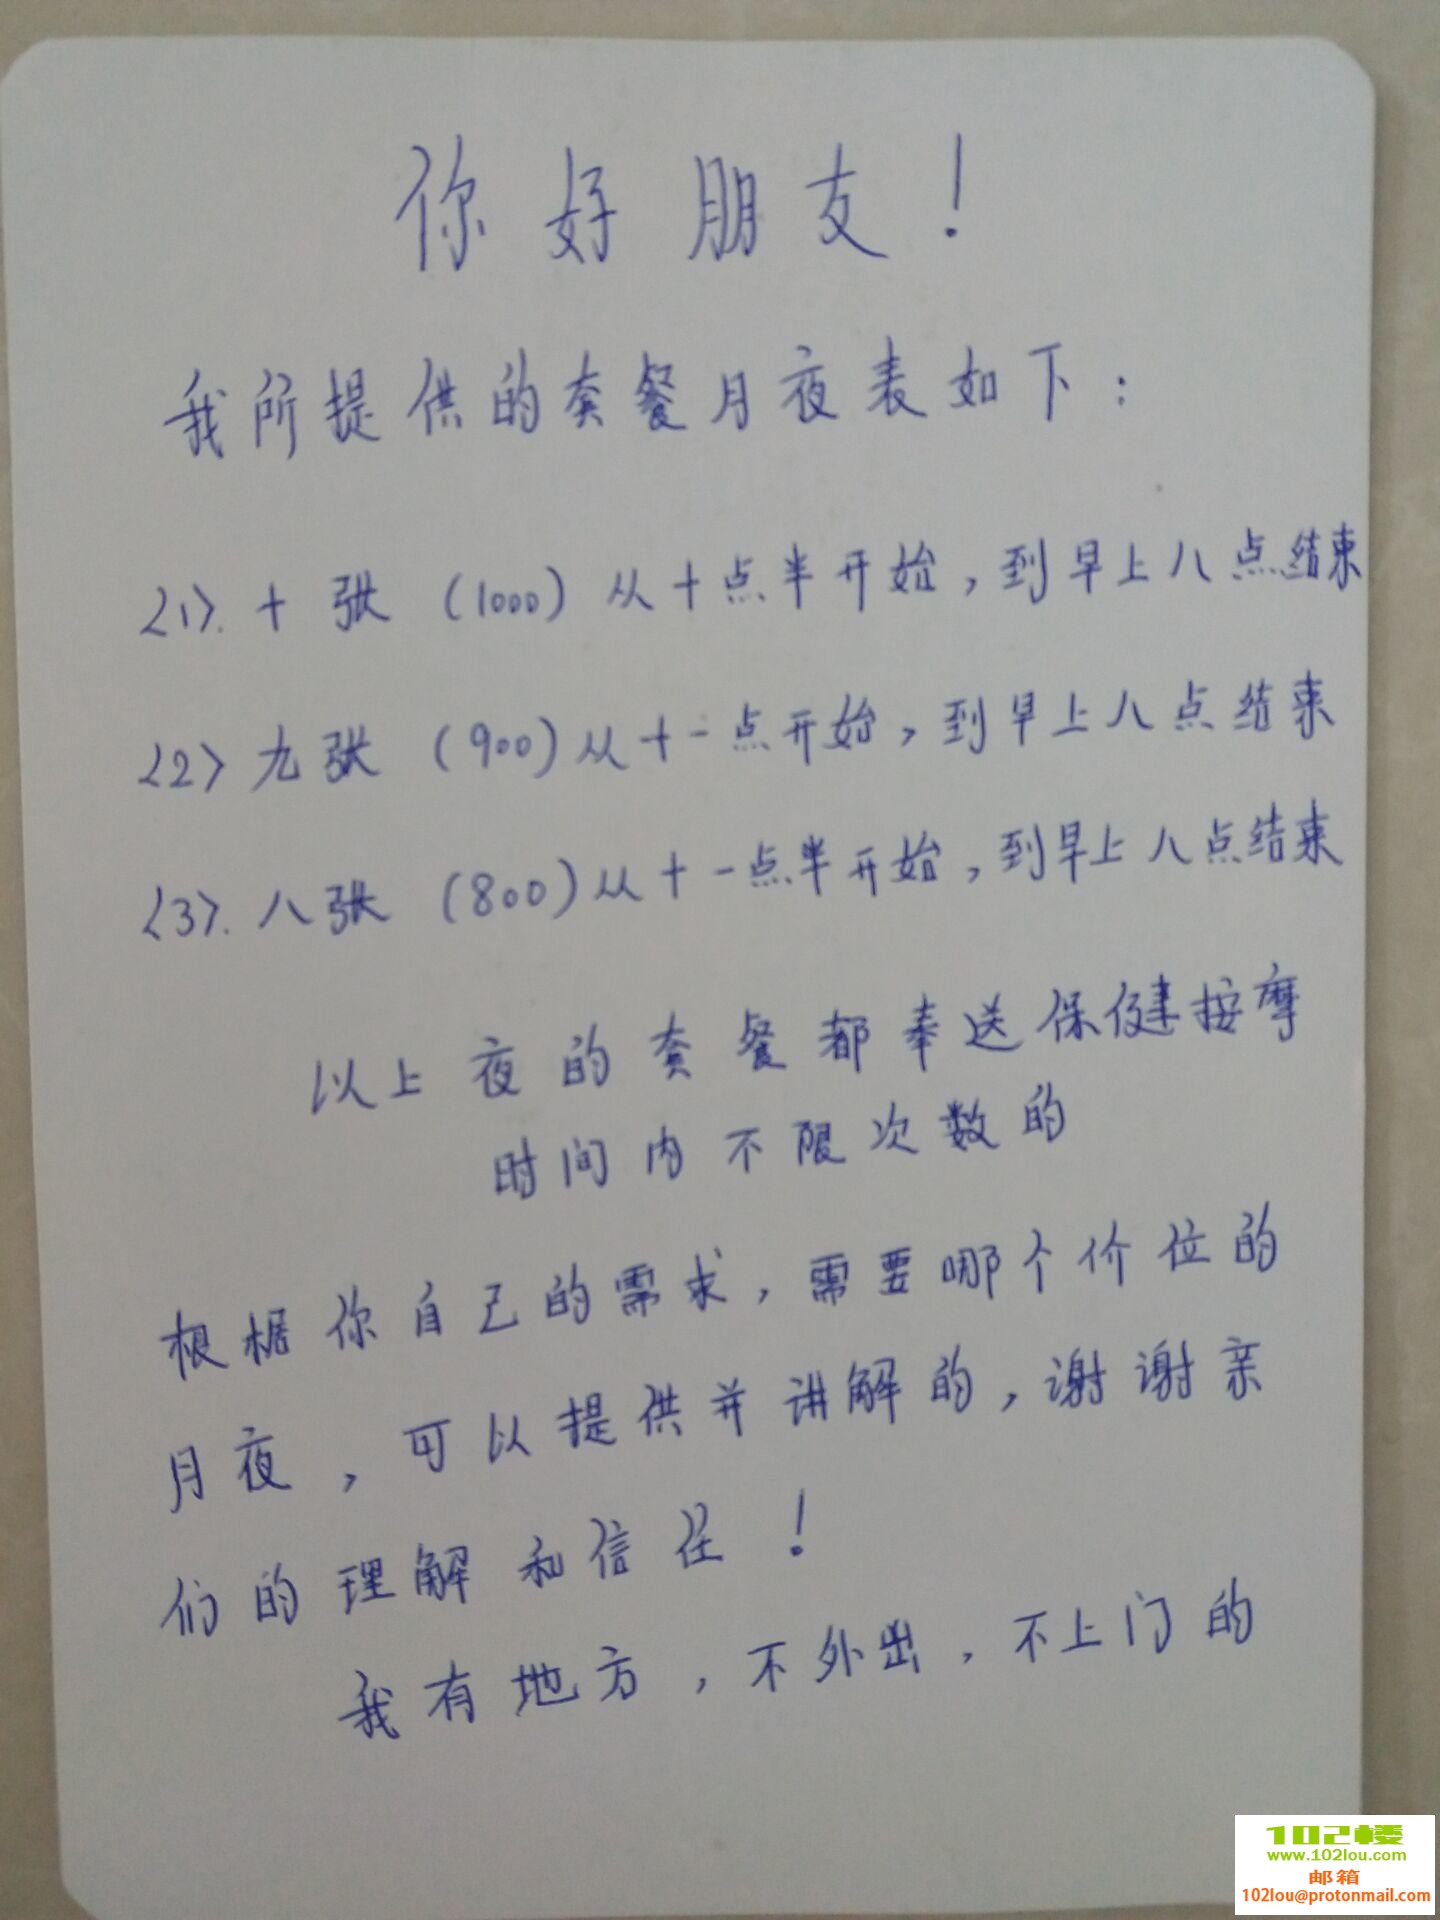 你好朋友！
我所提供的套餐月夜表如下：
〈1〉.十张（1000）从十点半开始，到早上八点结束
〈2〉九张（900）从十一点开始，到早上八点结束
〈3〉.八张（800）从十一点半开始，到早上八点结束
以上夜的套餐都奉送保健按摩
时间内不限次数的
根椐你自己的需求，需要哪个价位的
月夜，可以提供并讲解的，谢谢亲
们的理解和信任！
我有地方，不外出，不上门的
102楼
www.102lou.com
邮箱
102lou@protonmail.com